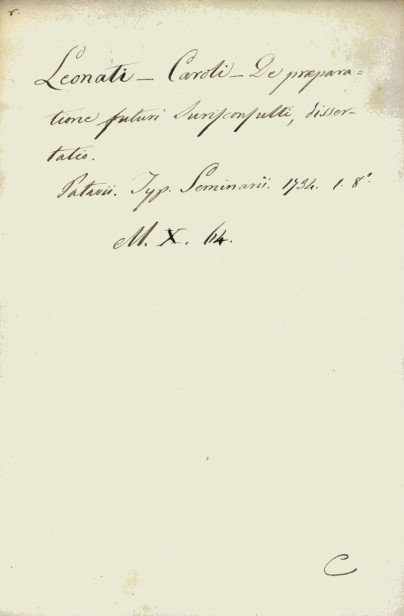 r.
Leonati – Caroli – De præpara=
tione futuri Jurisconsulti, disser-
tatio.
Patavii. Typ. Seminarii. 1794. 1. 8°.
M. X. 64.
C